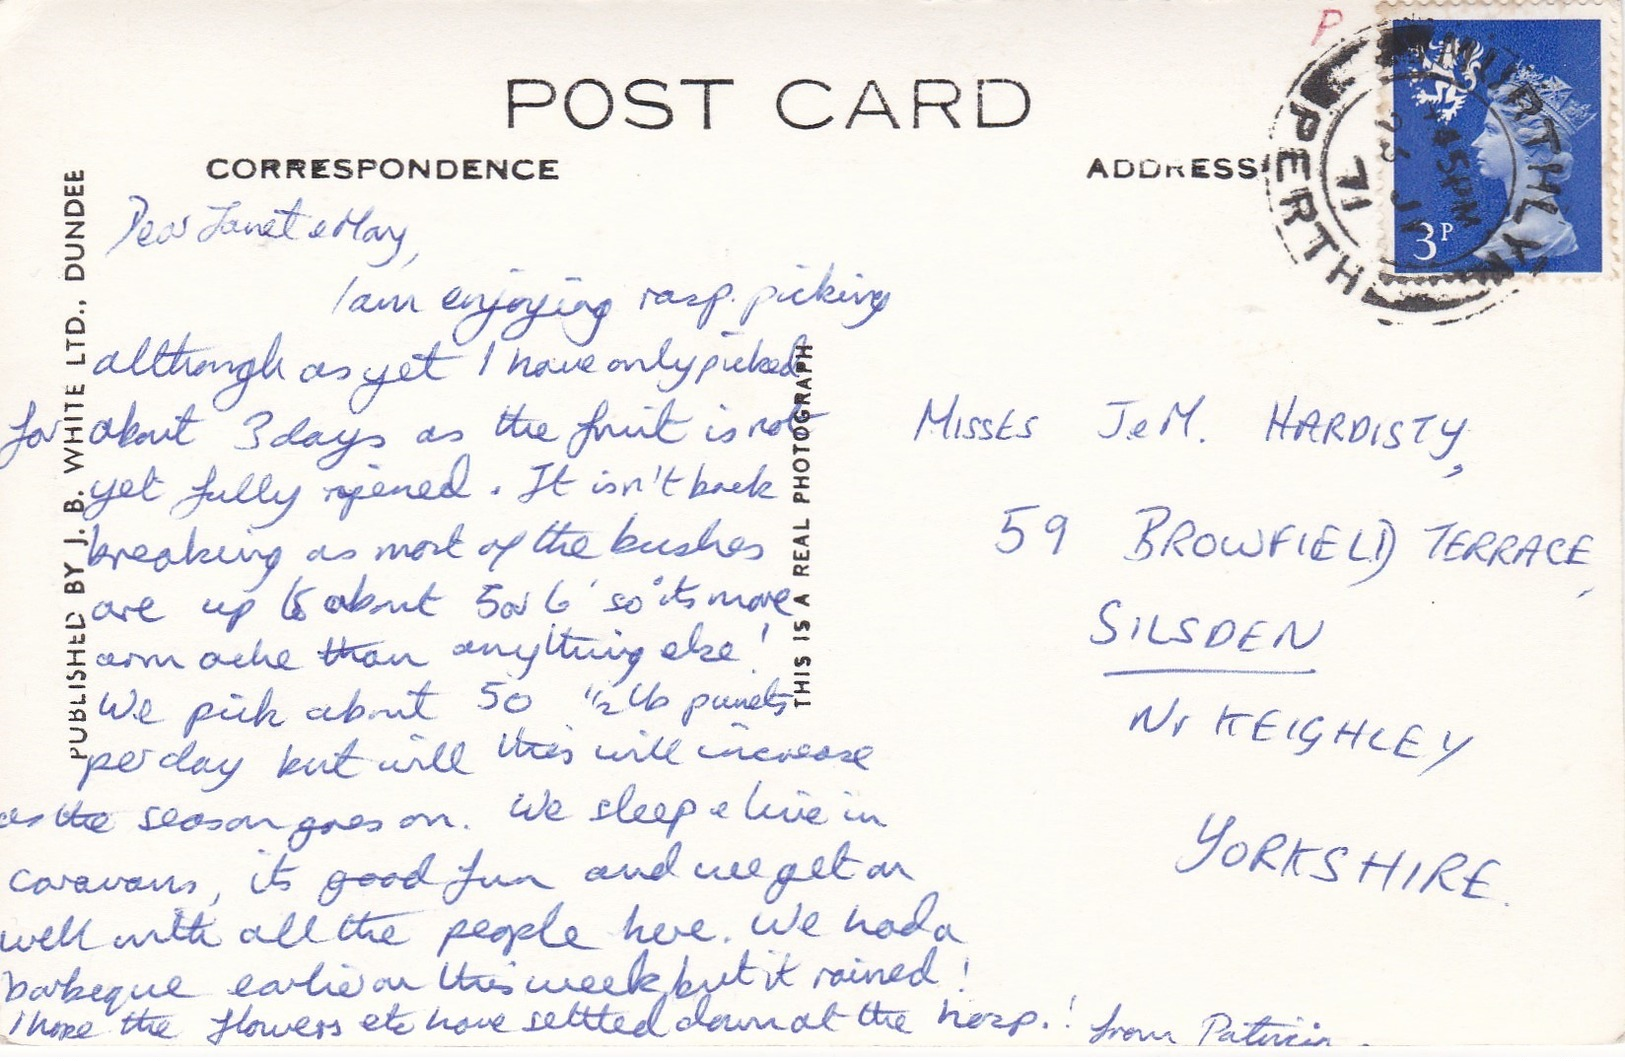 POST CARD
CORRESPONDENCE
ADDRESS
PUBLISHED BY J. B. WHITE LTD., DUNDEE
THIS IS A REAL PHOTOGRAPH
P
PERTH
45PM
71
3P
Dear Janet & Mary,
I am enjoying rasp. picking
although as yet I have only picked
for about 3 days as the fruit is not
yet fully ripened. It isn't back
breaking as most of the bushes
are up to about 5 or 6' so its more
arm ache than anything else!
We pick about 50 1/2 lb punets
per day but will this will increase
as the season goes on. We sleep & live in
caravans, its good fun and we get on
well with all the people here. We had a
barbeque earlier on this week but it rained!
I hope the flowers etc have settled down at the hosp.! from Patricia.
MISSES J & M. HARDISTY,
59 BROWFIELD TERRACE,
SILSDEN
Nr KEIGHLEY
YORKSHIRE.